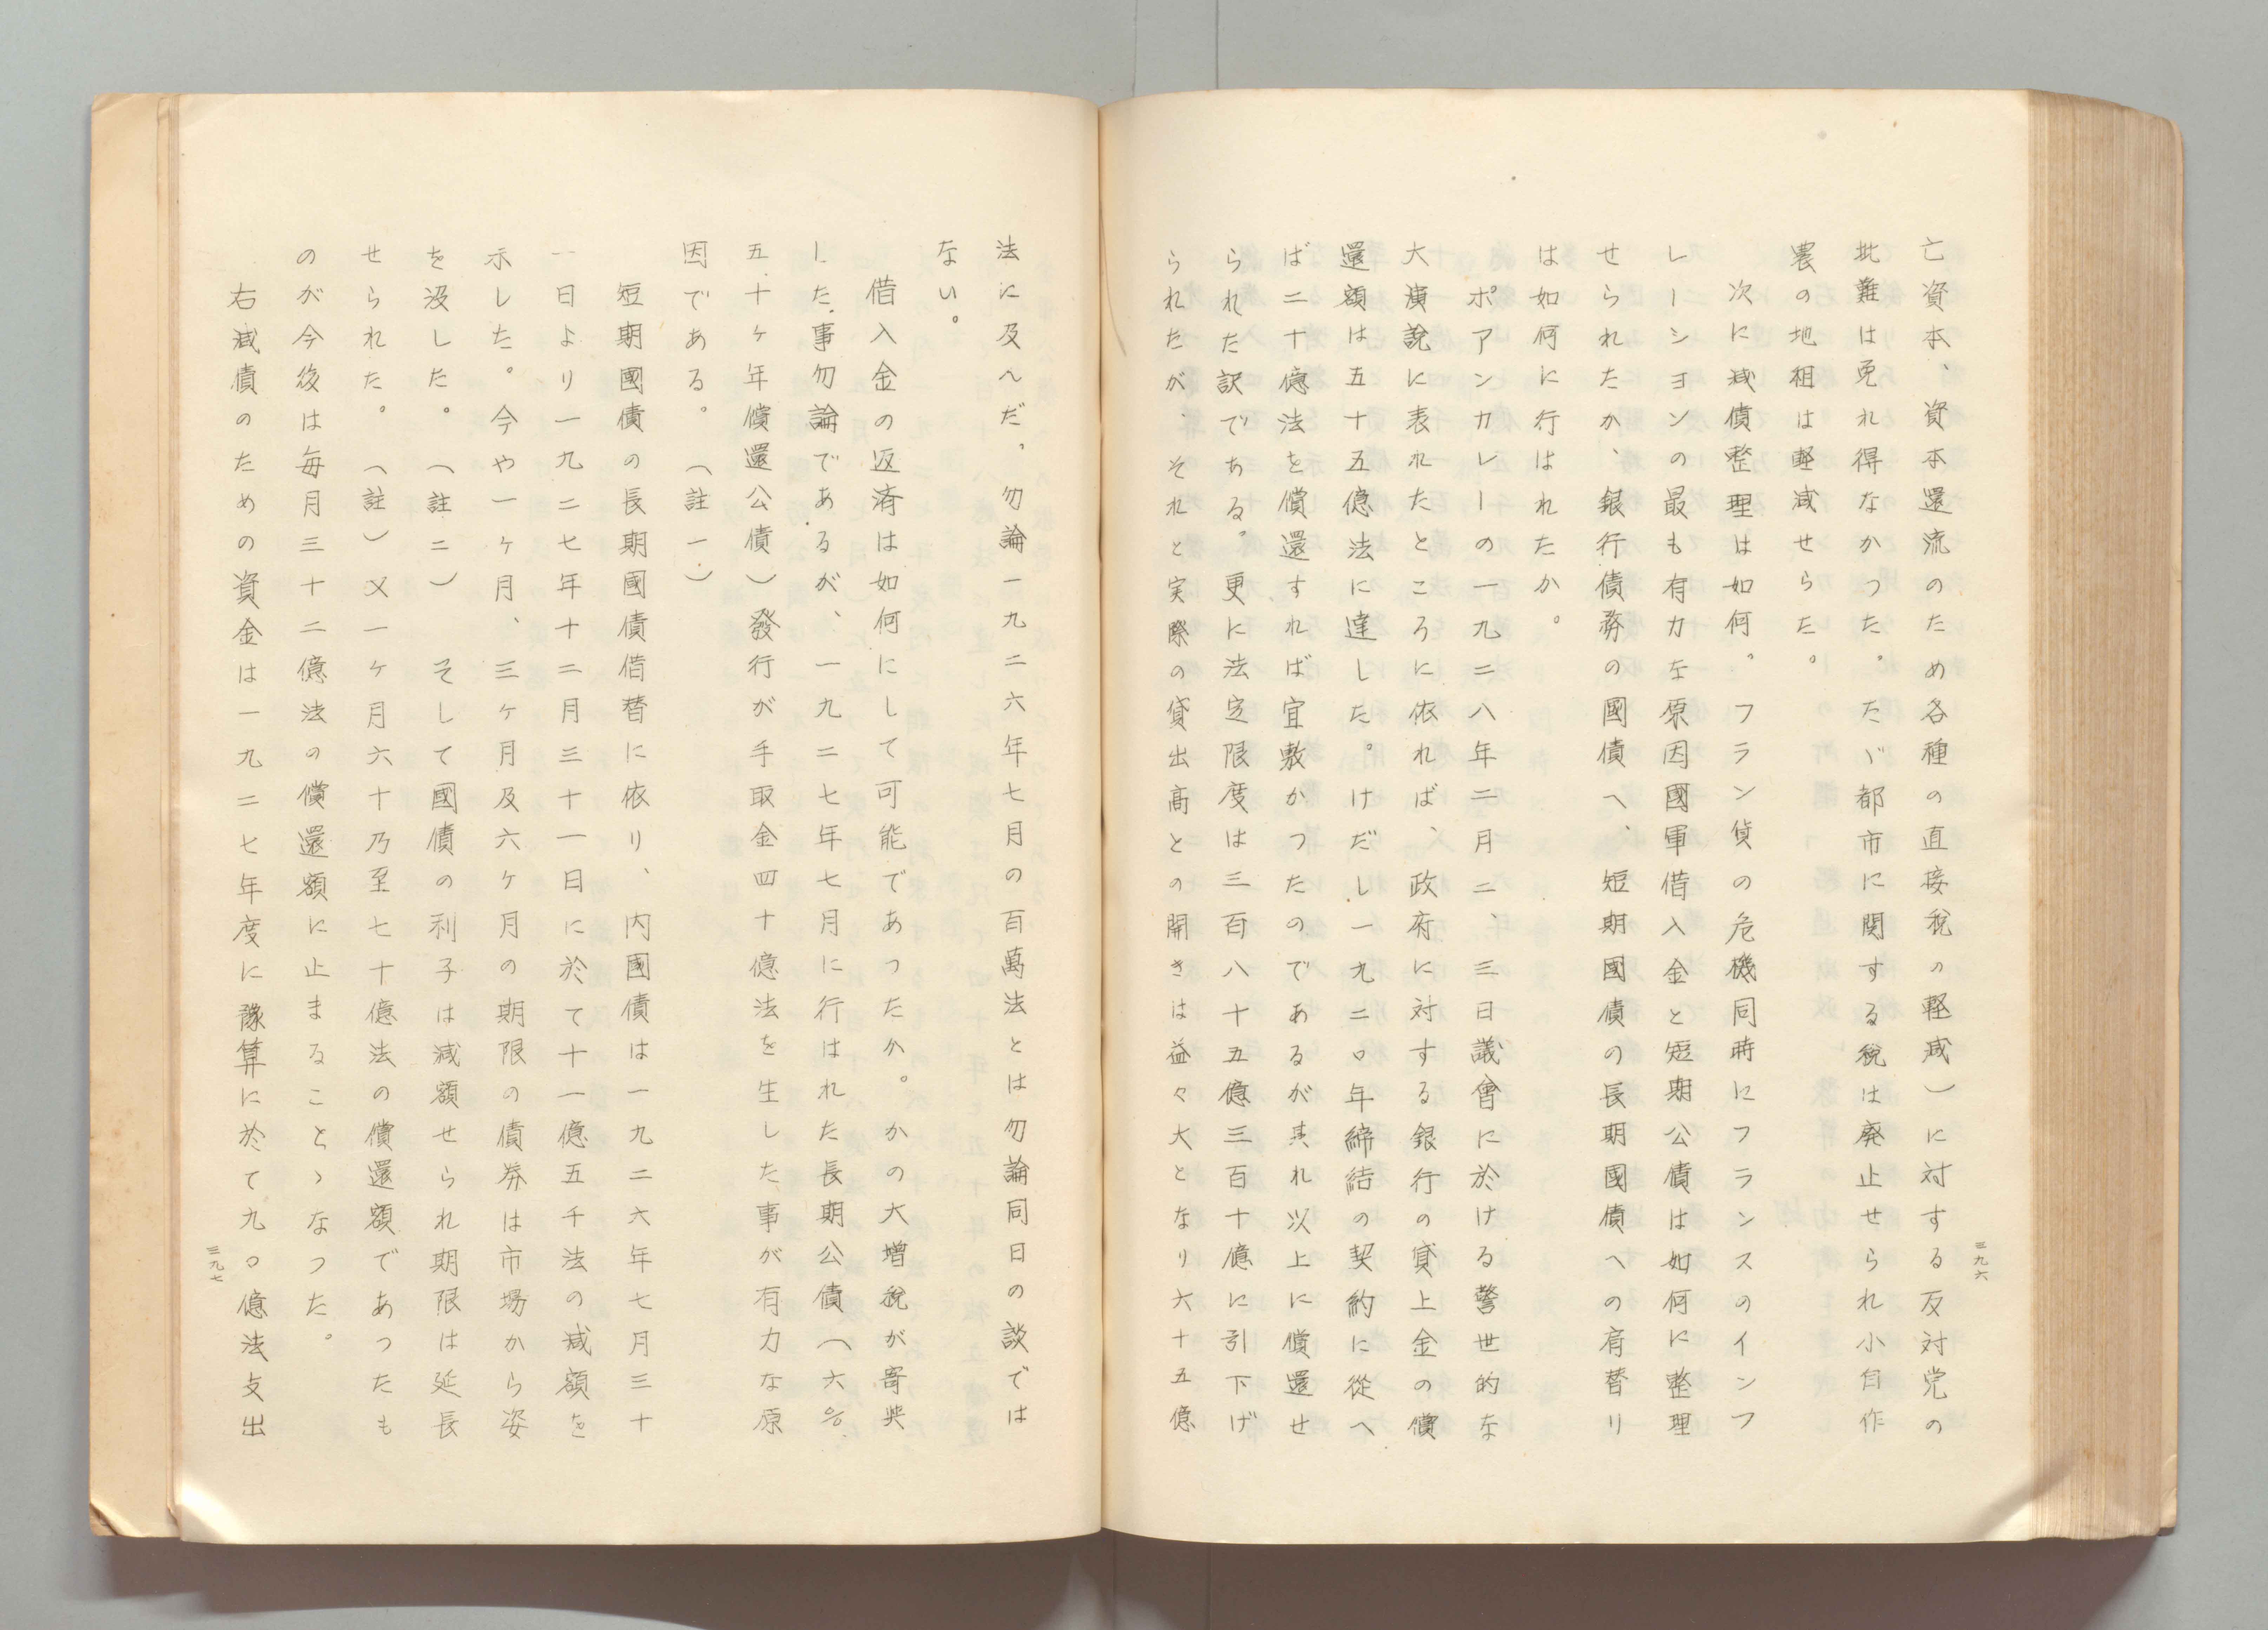 三九六
亡資本、資本還流のため各種の直接税の軽減）に対する反対党の
批難は免れ得なかつた。たゞ都市に関する税は廃止せられ小自作
農の地租は軽減せらた。
次に減債整理は如何。フランン貨の危機同時にフランスのインフ
レーションの最も有力な原因國軍借入金と短期公債は如何に整理
せられたか、銀行債務の國債へ、短期國債の長期國債への肩替り
は如何に行はれたか。
ポアンカレーの一九二八年二月二、三日議會に於ける警世的な
大演說に表れたところに依れば、政府に対する銀行の貸上金の償
還額は五十五億法に達した。けだし一九二〇年締結の契約に從へ
ば二十億法を償還すれば宜敷かつたのであるが其れ以上に償還せ
られた訳である。更に法定限度は三百八十五億三百十億に引下げ
られたが、それと実際の貸出高との開きは益々大となり六十五億
法に及んだ。勿論一九二六年七月の百萬法とは勿論同日の談では
ない。
借入金の返済は如何にして可能であつたか。かの大增税が寄与
した事勿論であるが、一九二七年七月に行はれた長期公債（六％
五十ヶ年償還公債）發行が手取金四十億法を生した事が有力な原
因である。（註一）
短期國債の長期國債借替に依り、内國債は一九二六年七月三十
一日より一九二七年十二月三十一日に於て十一億五千法の減額を
示した。今や一ヶ月、三ヶ月及六ヶ月の期限の債券は市場から姿
を没した。（註二）　そして國債の利子は減額せられ期限は延長
せられた。（註）又一ヶ月六十乃至七十億法の償還額であつたも
のが今後は毎月三十二億法の償還額に止まることゝなつた。
右減債のための資金は一九二七年度に豫算に於て九〇億法支出
三九七